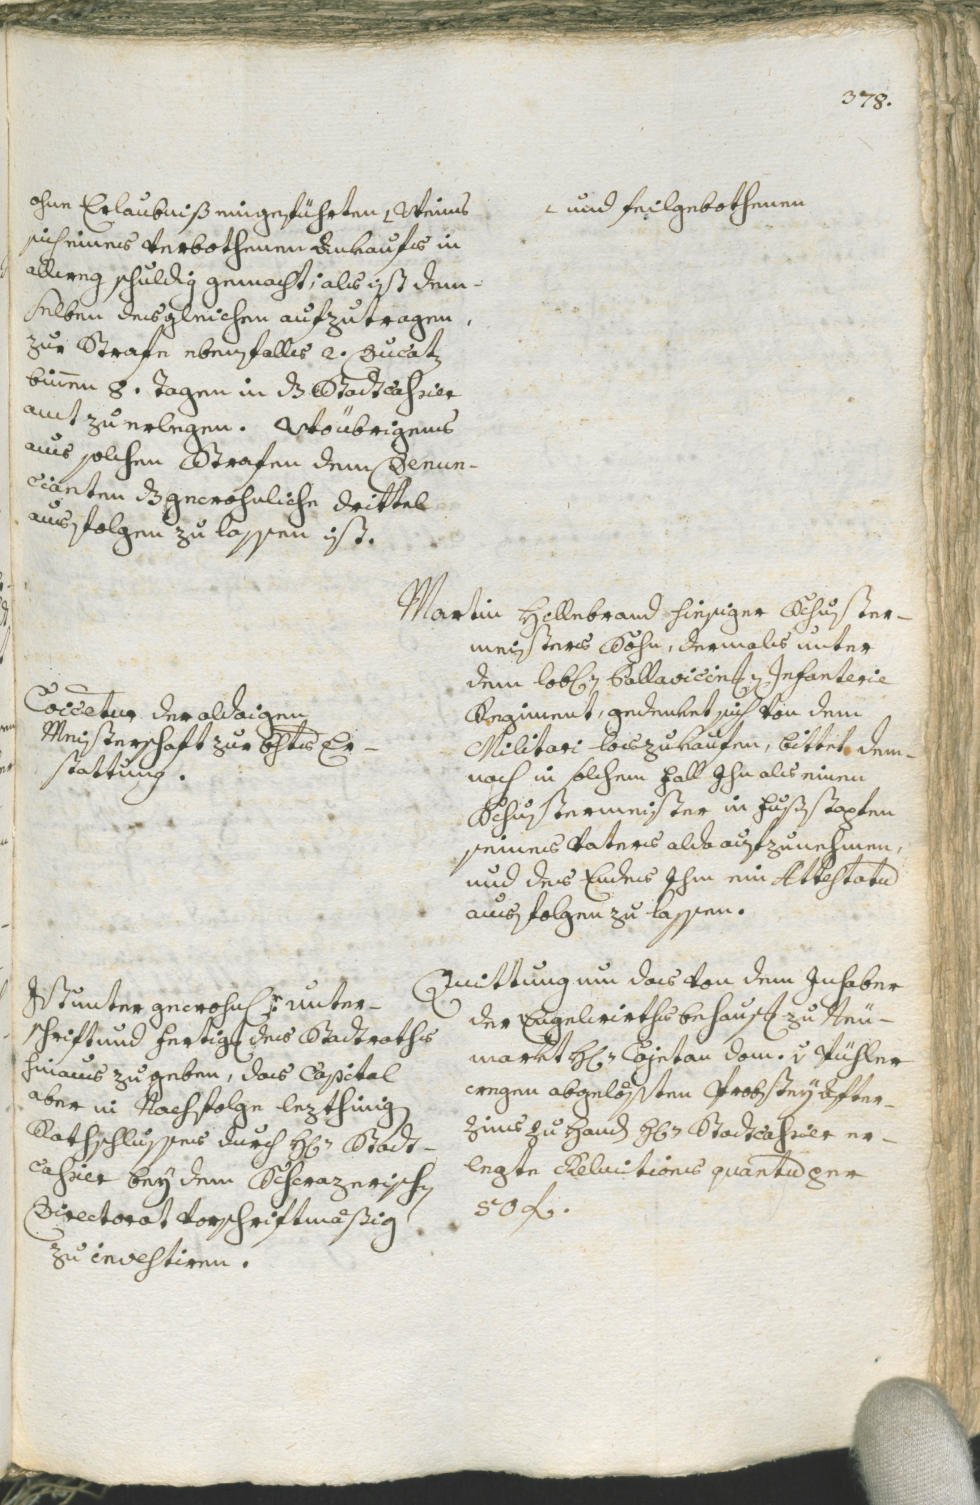 378.
ohne Erlaubniß eingeführten, Weins
sich eines verbothenen Einkaufs in
allweg schuldig gemacht; als ist dem-
selben desgleichen aufzutragen,
zur Strafe ebenfalls 2. Ducatz
binnen 8. Tagen in dz Stadtcassier
amt zu erlegen. Wo übrigens
aus solchen Strafen dem Denun-
cianten dz gewohnliche drittel
ausfolgen zu lassen ist.
und feilgebothenen
Martin Hillebrand hiesiger Schuster-
meisters Sohn, dermals unter
dem lobl. Pallavicinisch. Infanterie
Regiment, gedenket sich von dem
Militari loszukaufen, bittet dem-
nach in solchem Fall Ihn als einen
Schustermeister in Fußstapfen
seines Vaters alda aufzunehmen,
und des Endes Ihm ein Attestatum
ausfolgen zu lassen.
der aldaigen
Meisterschaft zur Er-
stattung.
Quittung um das von dem Inhaber
der Engelwirthsbehaus. zu Neu-
markt H. Cajetan Dom. v Vühler
wegen abgelößten Probstey Affter-
zins zu Hand. H. Stadtcassier er-
legte Reluitions quantum per
50 f.
Ist unter gewohnl. unter-
schrift und Fertig. des Stadtraths
hinaus zu geben, das Capital
aber in Nachfolge lezthinig
Rathschlusses durch H. Stadt-
cassier bey dem
Directorat vorschriftmäßig
zu investiren.